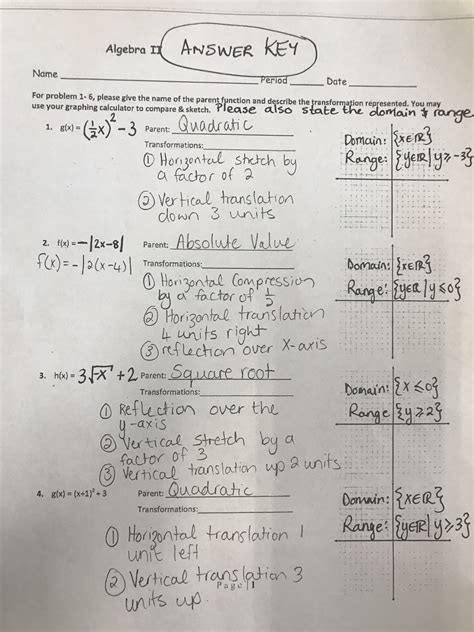 Algebra II ANSWER KEY
Name Period Date
For problem 1- 6, please give the name of the parent function and describe the transformation represented. You may
use your graphing calculator to compare & sketch. Please also state the domain & range
1. g(x) = (½x)² - 3 Parent: Quadratic
Transformations:
① Horizontal stretch by
a factor of 2
② Vertical translation
down 3 units
Domain: {x∈ℝ}
Range: {y∈ℝ| y≥-3}
2. f(x) = -|2x-8| Parent: Absolute Value
f(x) = -|2(x-4)| Transformations:
① Horizontal Compression
by a factor of ½
② Horizontal translation
4 units right
③ reflection over x-axis
Domain: {x∈ℝ}
Range: {y∈ℝ| y≤0}
3. h(x) = 3√-x + 2 Parent: Square root
Transformations:
① Reflection over the
y-axis
② Vertical stretch by a
factor of 3
③ Vertical translation up 2 units
Domain: {x≤0}
Range {y≥2}
4. g(x) = (x+1)² + 3 Parent: Quadratic
Transformations:
① Horizontal translation 1
unit left
② Vertical translation 3
units up
Domain: {x∈ℝ}
Range: {y∈ℝ| y≥3}
Page | 1